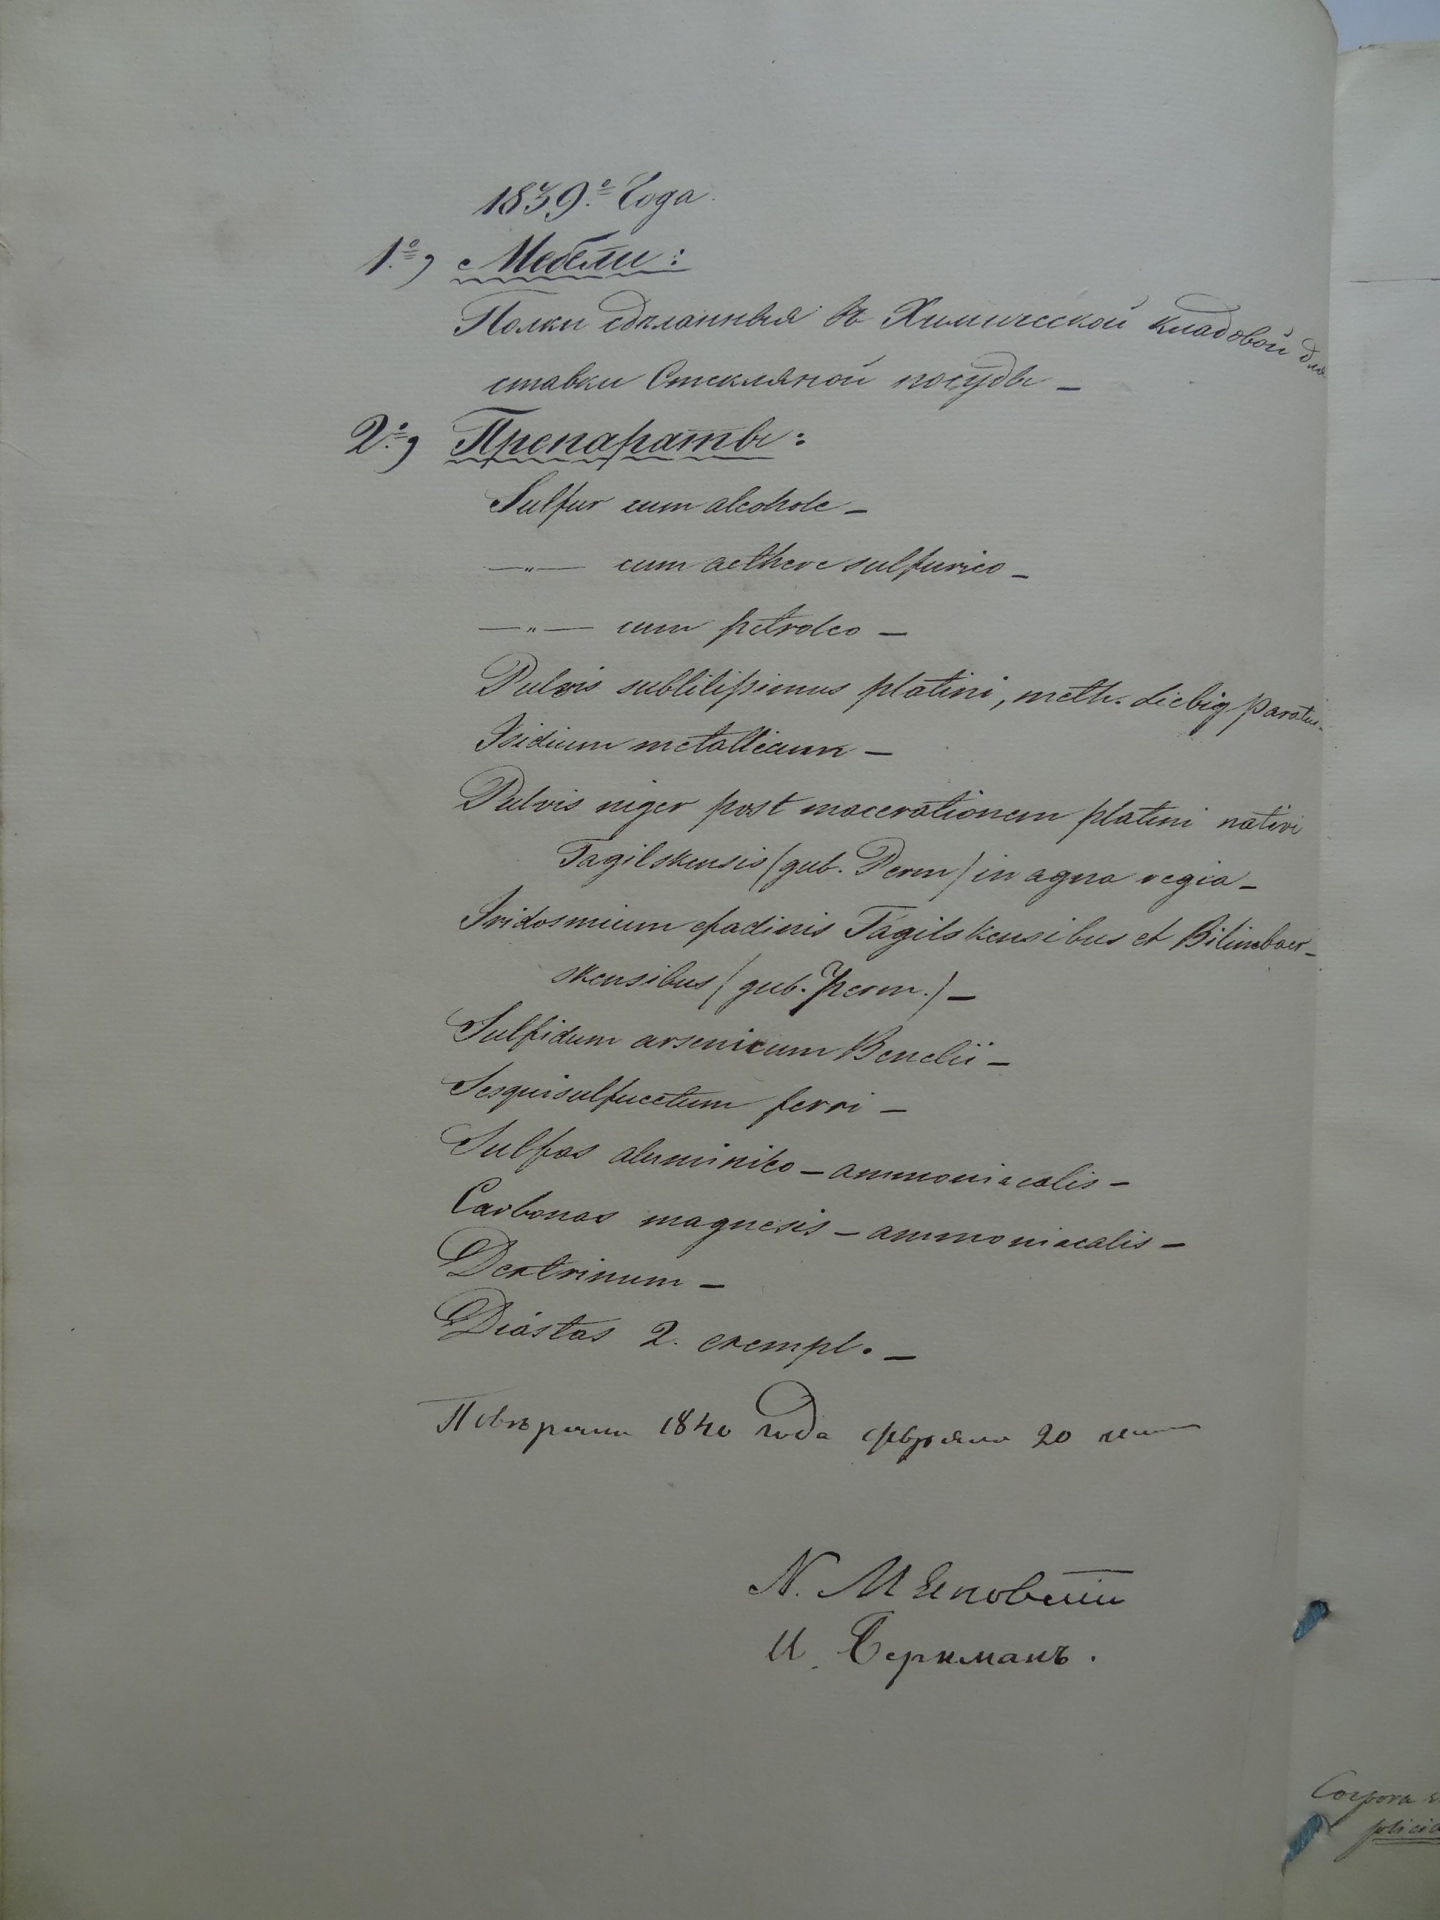 1839.º Года.
1.º, Мебели:
Полки сдѣланныя въ Химической кладовой для
ставки Стекляной посуды –
2.º, Препараты:
Sulfur cum alcohole –
—„— cum aethere sulfurico –
—„— cum petroleo –
Pulvis subtilissimus platini, meth. Liebig paratus –
Iridium metallicum –
Pulvis niger post macerationem platini nativi
Tagilskensis (gub. Perm) in aqua regia –
Iridosmium Tagilskensibus et Bilimbaer-
skensibus (gub. Perm.) –
Sulfidum arsenicum –
Sesquisulfuretum ferri –
Sulfas aluminico – ammoniacalis –
Carbonas magnesis – ammoniacalis –
Dextrinum –
Diastas 2. exempl. –
Повѣряли 1840 года февраля 20 дня
N. Мяновскій
И. Беркманъ.
Corpora